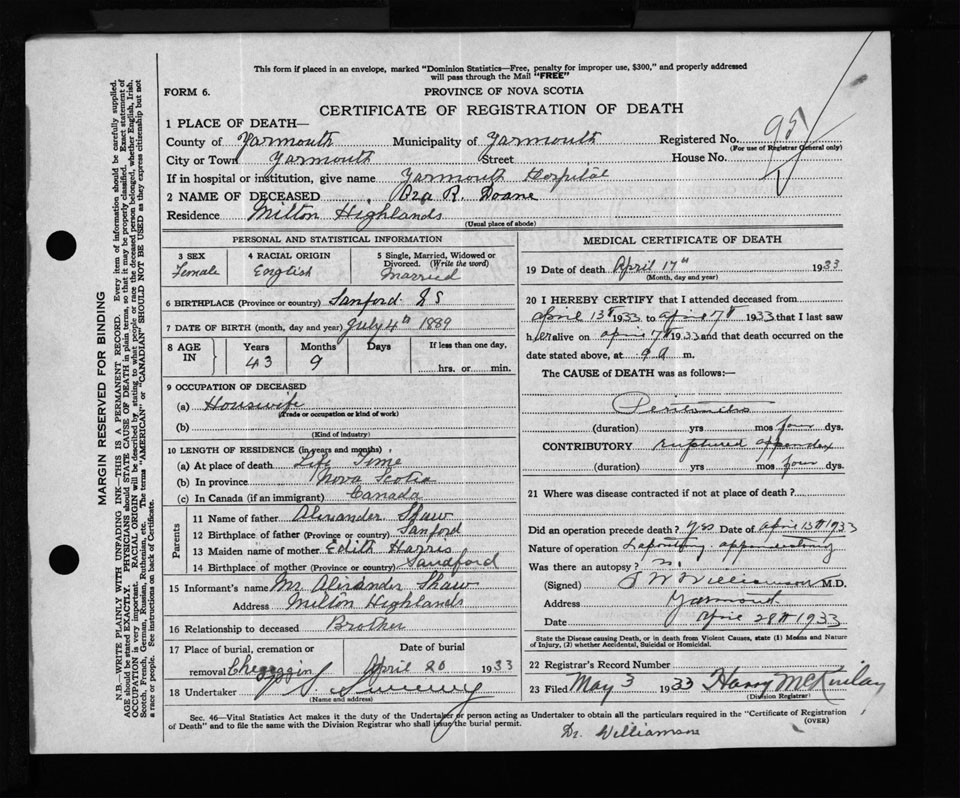 This form if placed in an envelope, marked "Dominion Statistics—Free, penalty for improper use, $300," and properly addressed
will pass through the Mail "FREE"
FORM 6.
PROVINCE OF NOVA SCOTIA
CERTIFICATE OF REGISTRATION OF DEATH
1 PLACE OF DEATH—
County of Yarmouth Municipality of Yarmouth Registered No. 95
(For use of Registrar General only)
City or Town Yarmouth Street House No.
If in hospital or institution, give name Yarmouth Hospital
2 NAME OF DECEASED Ora R. Doane
Residence Milton Highlands
(Usual place of abode)
PERSONAL AND STATISTICAL INFORMATION
3 SEX 4 RACIAL ORIGIN 5 Single, Married, Widowed or
Divorced. (Write the word)
Female English Married
6 BIRTHPLACE (Province or country) Sanford N S
7 DATE OF BIRTH (month, day and year) July 4th 1889
8 AGE IN Years Months Days If less than one day,
43 9 hrs. or min.
9 OCCUPATION OF DECEASED
(a) Housewife
(Trade or occupation or kind of work)
(b)
(Kind of industry)
10 LENGTH OF RESIDENCE (in years and months)
(a) At place of death Life Time
(b) In province Nova Scotia
(c) In Canada (if an immigrant) Canada
Parents
11 Name of father Alixander Shaw
12 Birthplace of father (Province or country) Sanford
13 Maiden name of mother Edith Harris
14 Birthplace of mother (Province or country) Sandford
15 Informant's name Mr. Alixander Shaw
Address Milton Highlands
16 Relationship to deceased Brother
17 Place of burial, cremation or Date of burial
removal April 20 1933
18 Undertaker Sweeney
(Name and address)
MEDICAL CERTIFICATE OF DEATH
19 Date of death April 17th 1933
(Month, day and year)
20 I HEREBY CERTIFY that I attended deceased from
April 13th 1933 to April 17th 1933 that I last saw
her alive on April 17th 1933 and that death occurred on the
date stated above, at 9 a m.
The CAUSE of DEATH was as follows:—
Peritonitis
(duration) yrs mos four dys.
CONTRIBUTORY Ruptured appendix
(duration) yrs mos four dys.
21 Where was disease contracted if not at place of death?
Did an operation precede death? yes Date of April 13th 1933
Nature of operation
Was there an autopsy?
(Signed) Williamson M.D.
Address Yarmouth
Date April 28th 1933
State the Disease causing Death, or in death from Violent Causes, state (1) Means and Nature
of Injury, (2) whether Accidental, Suicidal or Homicidal.
22 Registrar's Record Number
23 Filed May 3 1933 Harry McKinlay
(Division Registrar)
Sec. 46—Vital Statistics Act makes it the duty of the Undertaker or person acting as Undertaker to obtain all the particulars required in the "Certificate of Registration
of Death" and to file the same with the Division Registrar who shall issue the burial permit.
(OVER)
Dr. Williamson
MARGIN RESERVED FOR BINDING
N.B.—WRITE PLAINLY WITH UNFADING INK—THIS IS A PERMANENT RECORD. Every item of information should be carefully supplied.
AGE should be stated EXACTLY. PHYSICIANS should STATE CAUSE OF DEATH in plain terms, so that it may be properly classified. Exact statement of
OCCUPATION is very important. RACIAL ORIGIN will be described by stating to what people or race the deceased person belonged, whether English, Irish,
Scotch, French, German, Russian, Ruthenian, etc. The terms "AMERICAN" or "CANADIAN" SHOULD NOT BE USED as they express citizenship but not
a race or people. See instructions on back of Certificate.